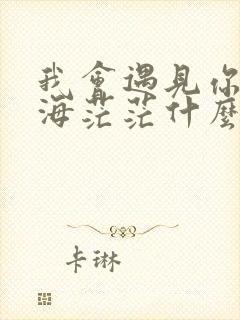 我會遇見你
海茫茫什麼
卡琳